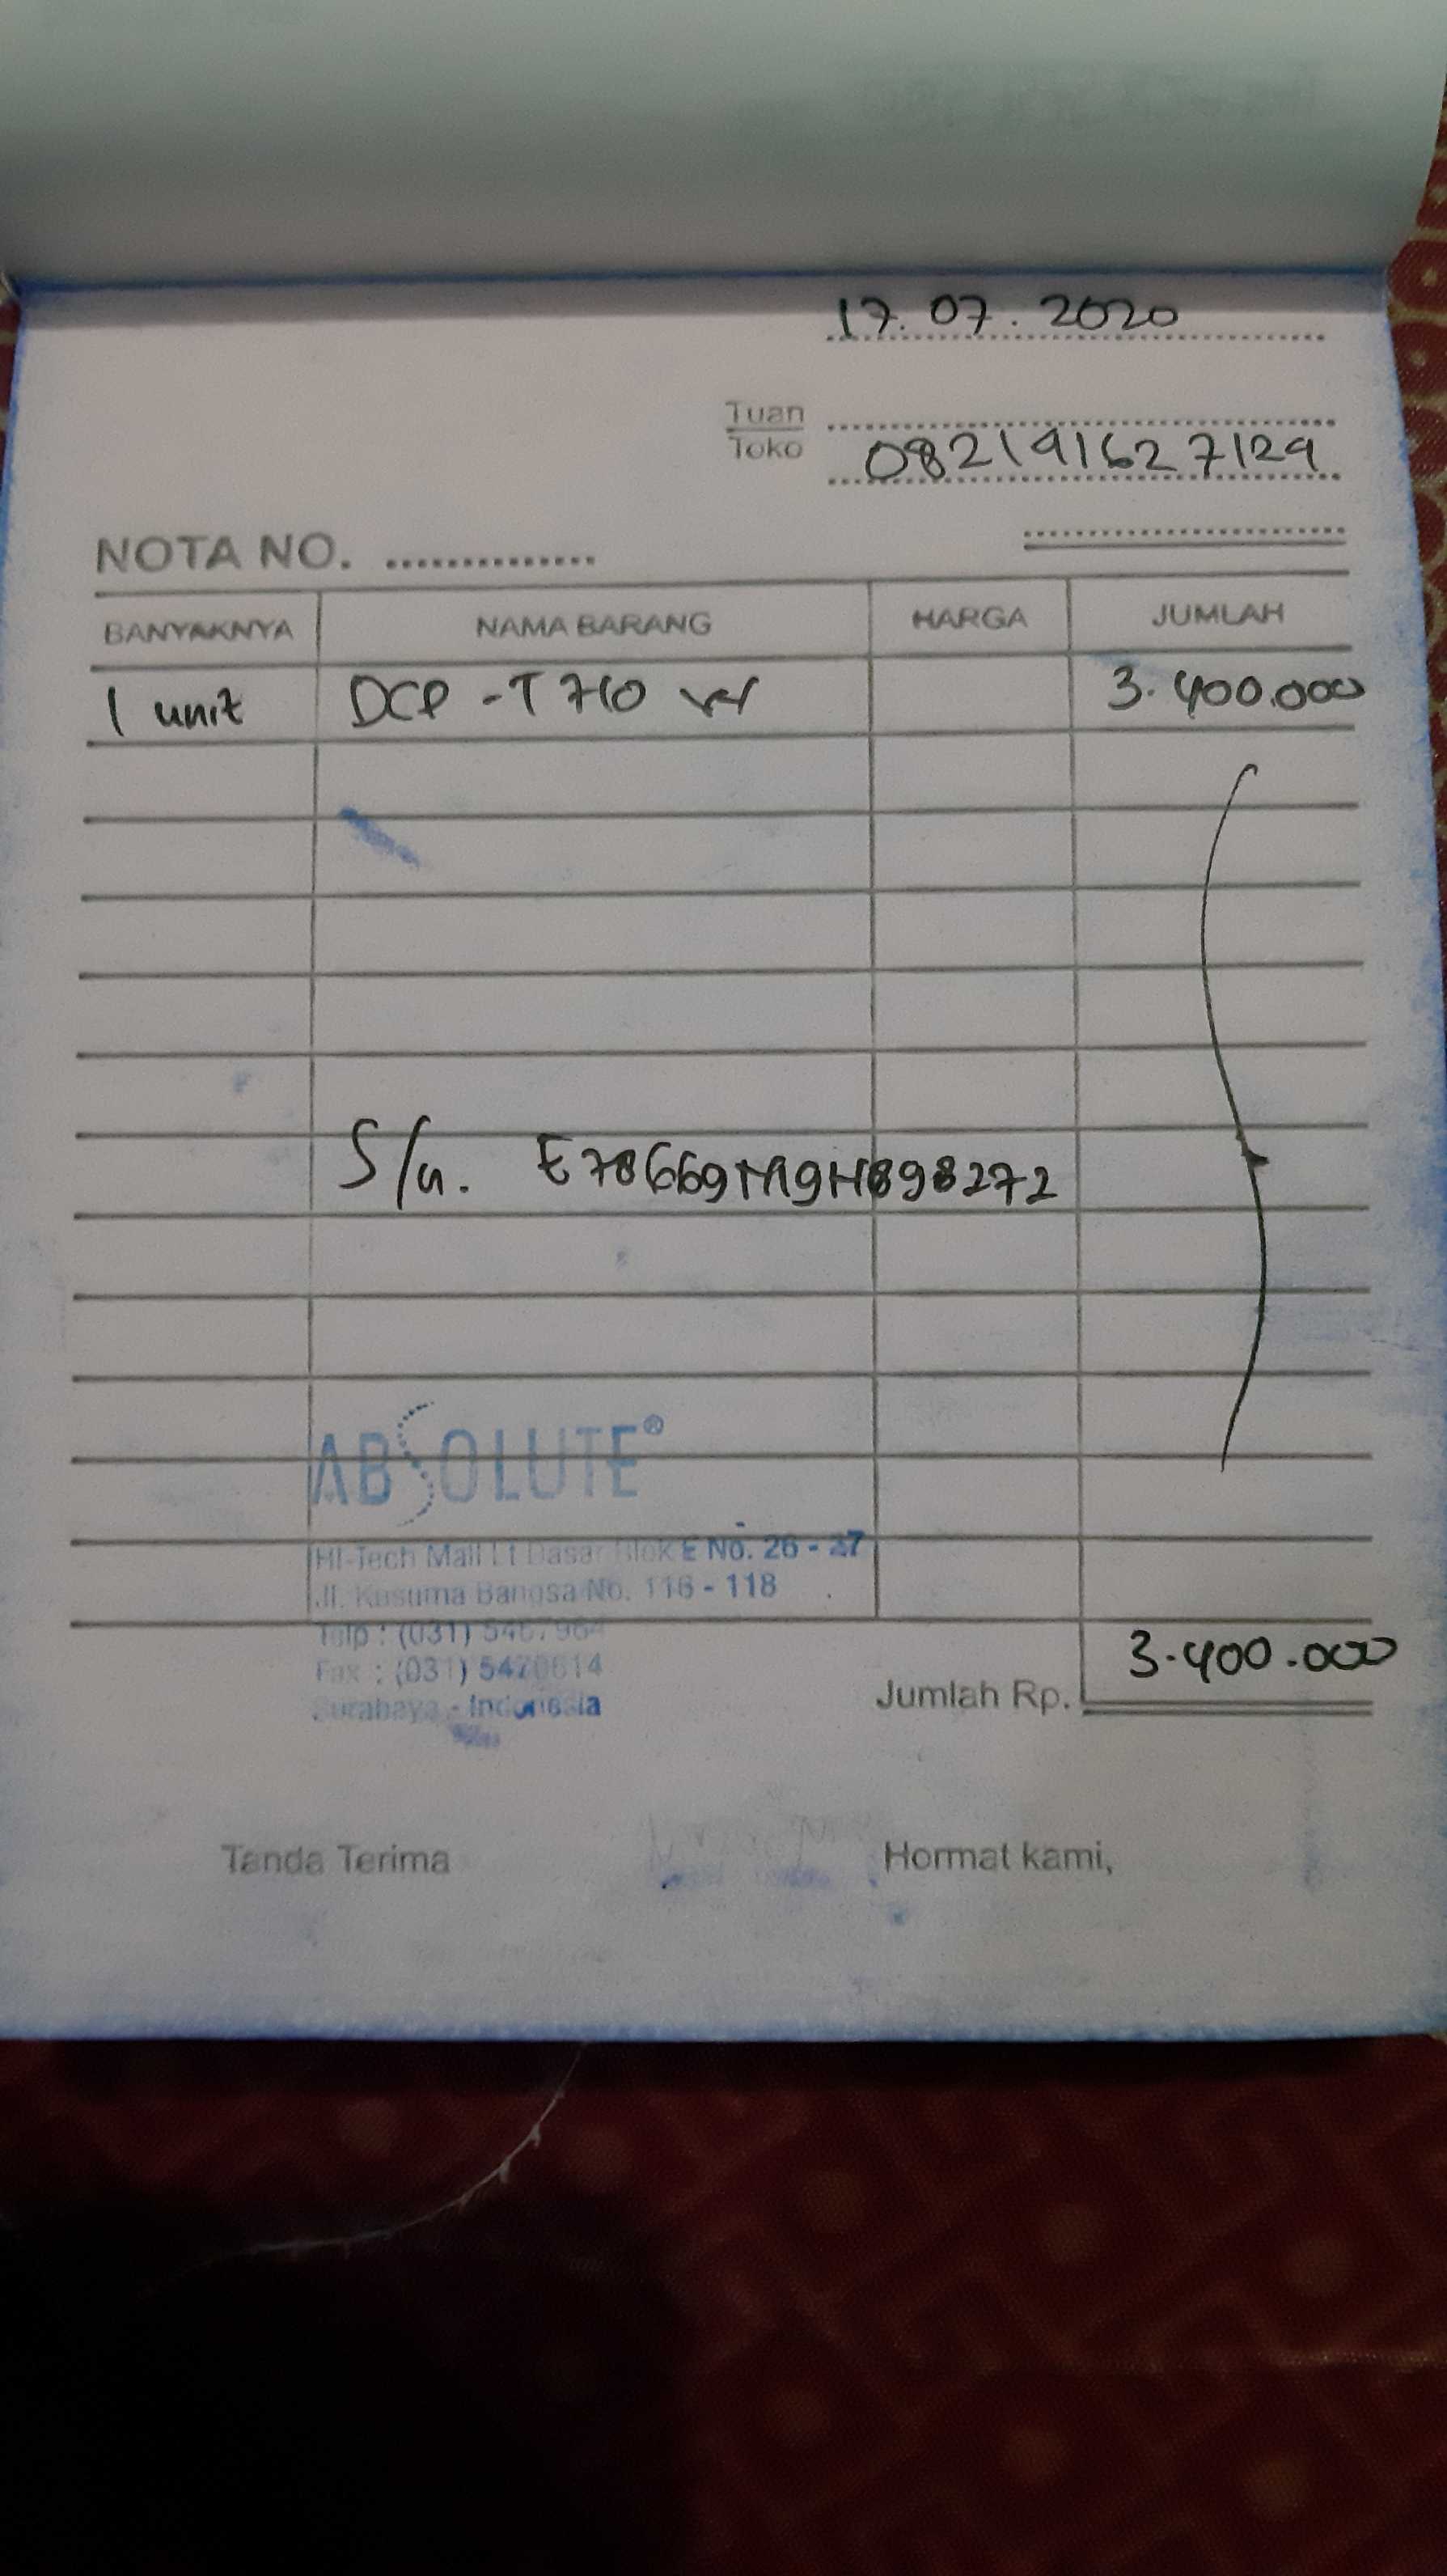 17.07.2020
Tuan
Toko 082191627129
NOTA NO. ..............
BANYAKNYA NAMA BARANG HARGA JUMLAH
1 unit DCP-T710 W 3.400.000
S/n. E78669M9H898272
ABSOLUTE®
Hi-Tech Mall Lt Dasar Blok E No. 26 - 27
Jl. Kusuma Bangsa No. 116 - 118
Telp : (031)
Fax : (031) 5470614
Surabaya - Indonesia
Jumlah Rp. 3.400.000
Tanda Terima Hormat kami,